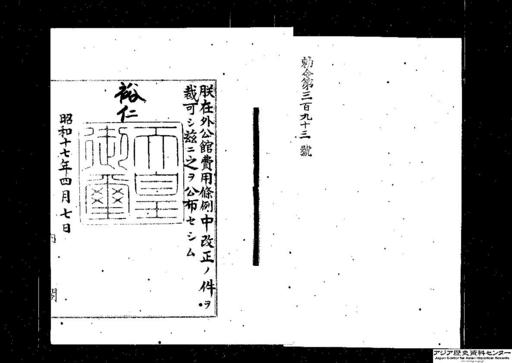 勅令第三百九十三號
朕在外公館費用條例中改正ノ件ヲ
裁可シ茲ニ之ヲ公布セシム
裕仁
天皇
御璽
昭和十七年四月七日
アジア歴史資料センター
Japan Center for Asian Historical Records